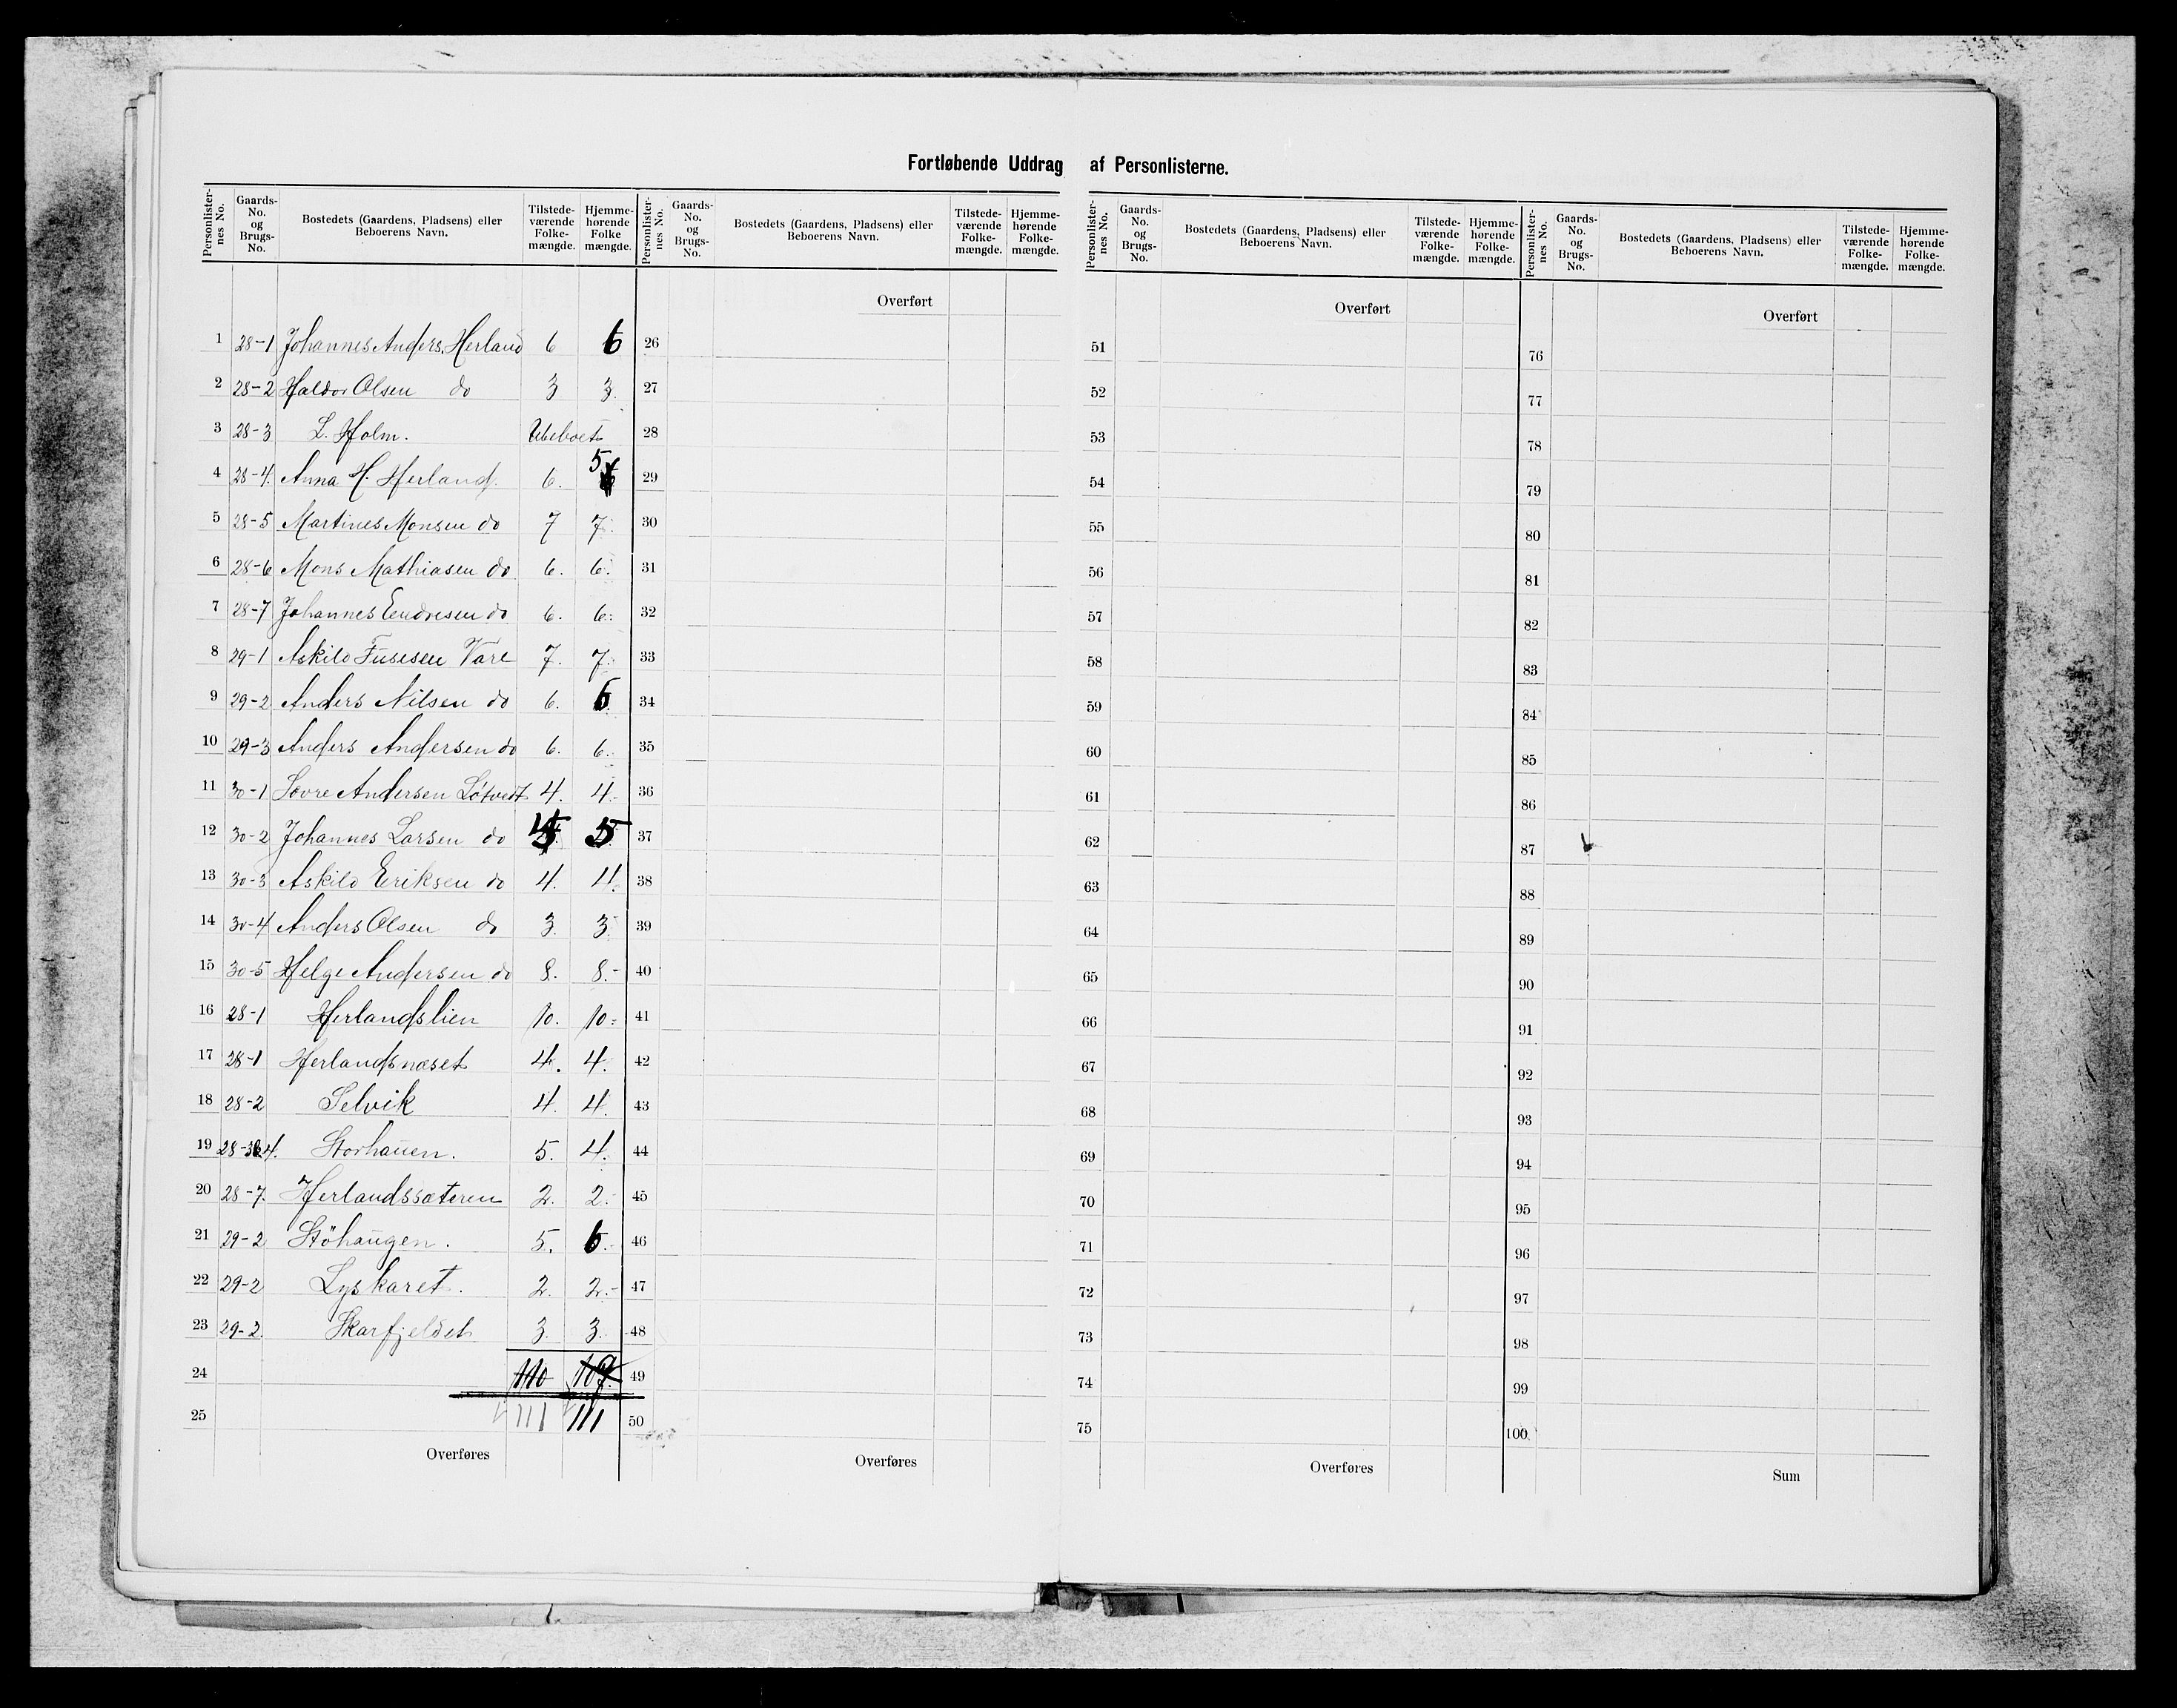 Fortløbende Uddrag af Personlisterne.
Personlister-nes No. | Gaards-No. og Brugs-No. | Bostedets (Gaardens, Pladsens) eller Beboerens Navn. | Tilstede-værende Folke-mængde. | Hjemme-hørende Folke mængde. | Personlister-nes No. | Gaards-No. og Brugs-No. | Bostedets (Gaardens, Pladsens) eller Beboerens Navn. | Tilstede-værende Folke-mængde. | Hjemme-hørende Folke-mængde. | Personlister-nes No. | Gaards-No. og Brugs-No. | Bostedets (Gaardens, Pladsens) eller Beboerens Navn. | Tilstede-værende Folke-mængde. | Hjemme-hørende Folke-mængde. | Personlister-nes No. | Gaards-No. og Brugs-No. | Bostedets (Gaardens, Pladsens) eller Beboerens Navn. | Tilstede-værende Folke-mængde. | Hjemme-hørende Folke-mængde.
Overført Overført Overført
1 28-1 Johannes Anders. Herland 6 6 26 51 76
2 28-2 Haldor Olsen do 3 3. 27 52 77
3 28-3 L. Holm. Ubeboet 28 53 78
4 28-4. Anna H. Herland. 6. 5 29 54 79
5 28-5 Martines Monsen do 7 7. 30 55 80
6 28-6 Mons Mathiasen do 6. 6. 31 56 81
7 28-7 Johannes Endresen do 6. 6. 32 57 82
8 29-1 Askild Fusesen Vare 7. 7. 33 58 83
9 29-2 Anders Nilsen do 6. 6 34 59 84
10 29-3 Anders Andersen do 6. 6. 35 60 85
11 30-1 Sovre Andersen Løtvedt 4. 4. 36 61 86
12 30-2 Johannes Larsen do 5 37 62 87
13 30-3 Askild Eriksen do 4. 4. 38 63 88
14 30-4 Anders Olsen do 3. 3. 39 64 89
15 30-5 Helge Andersen do 8. 8. 40 65 90
16 28-1 Herlandslien 10. 10. 41 66 91
17 28-1 Herlandsnæset 4. 4. 42 67 92
18 28-2 Selvik 4. 4. 43 68 93
19 28-3&4. Storhauen. 5. 4. 44 69 94
20 28-7. Herlandssæteren 2. 2. 45 70 95
21 29-2 Stöhaugen. 5. 6. 46 71 96
22 29-2 Lyskaret. 2. 2. 47 72 97
23 29-2. Skarfjeldet 3. 3. 48 73 98
24 110 49 74 99
25 111 111 50 75 100
Overføres Overføres Overføres Sum